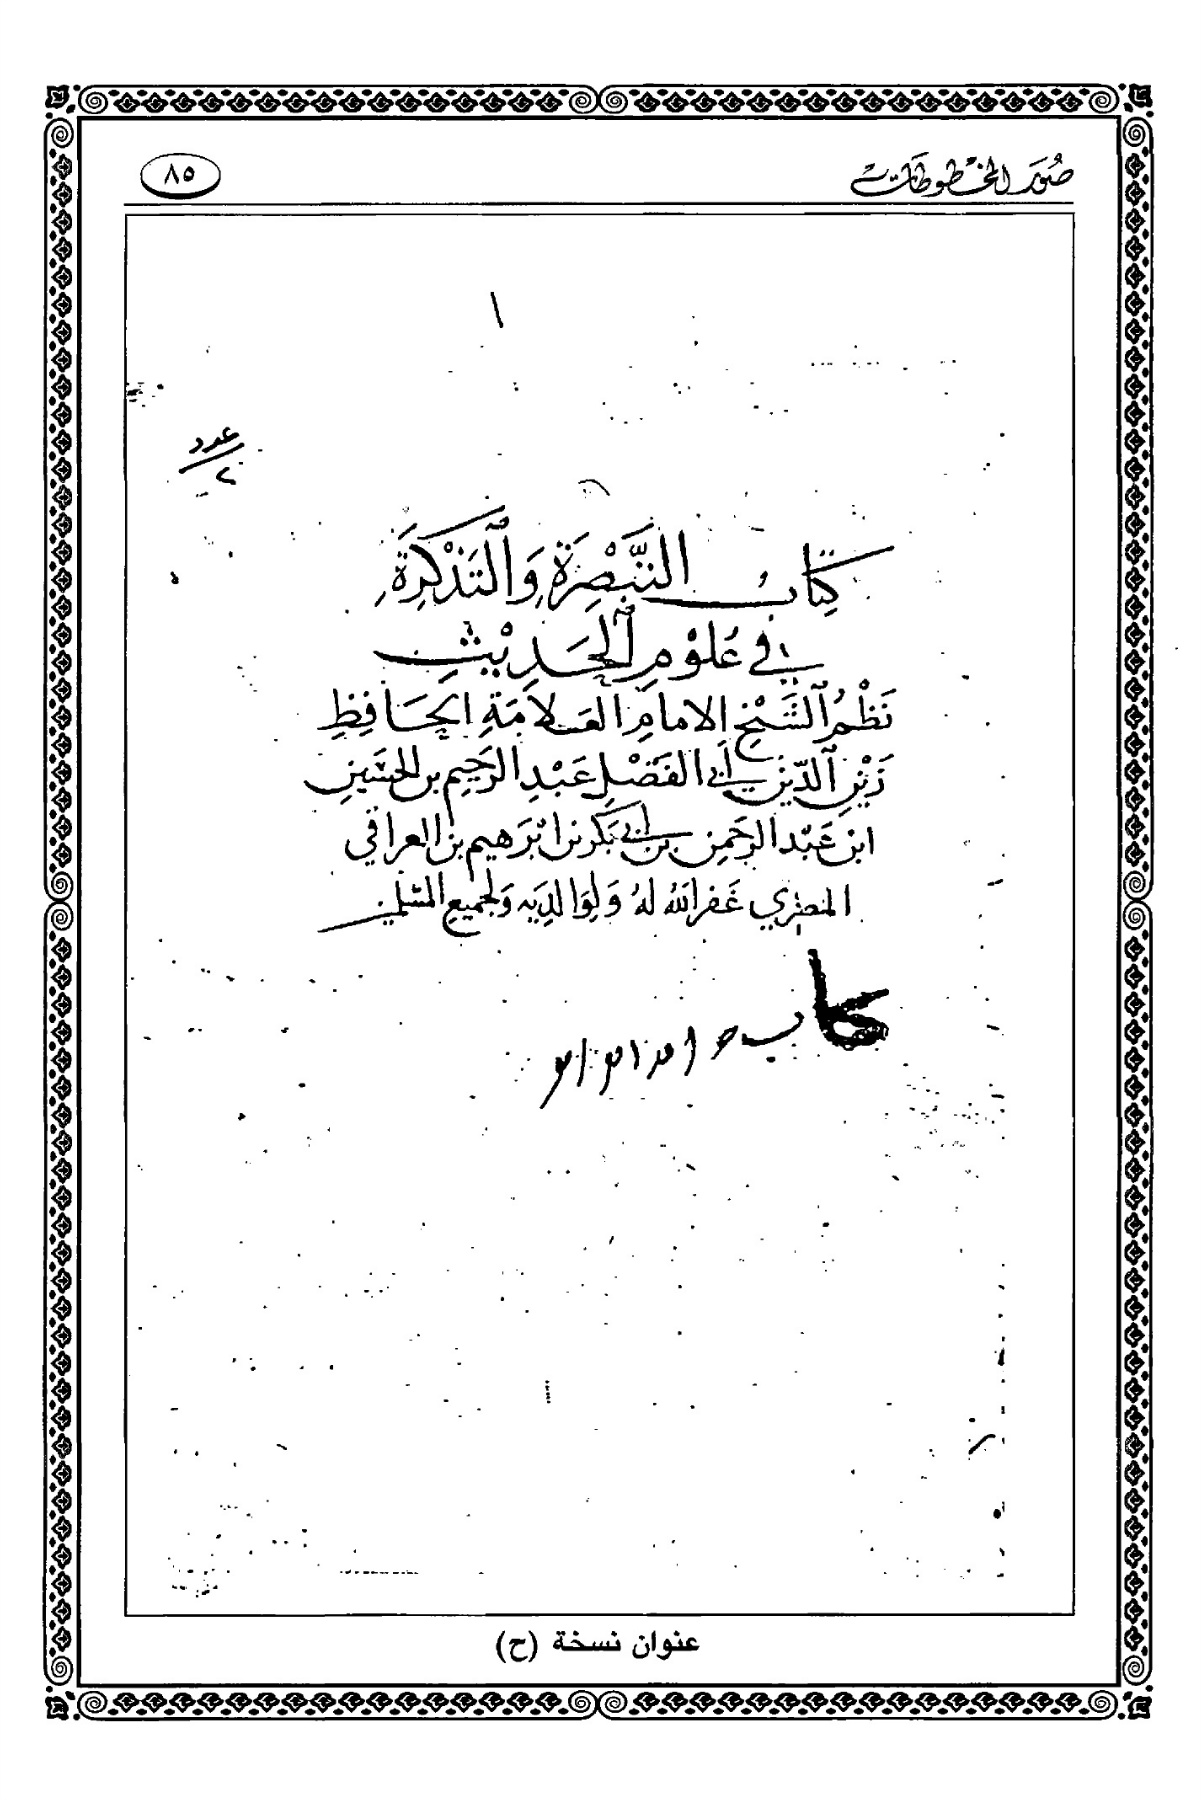 صُوَر المخطوطات
٨٥
١
عدد
٢
كِتَابُ التَّبْصِرَةِ وَالتَذْكِرَةِ
في عُلوْمِ الحَدِيْثِ
نَظْمُ الشَّيْخِ الامامِ العَلامَةِ الحَافِظِ
زَيْنِ الدّين أبي الفَضْلِ عَبْدِ الرَحِيمِ بن الحسَينِ
ابن عَبْد الرحَمن بن أبي بَكر بن ابْرَهيم بن العراقي
المصْري غَفر الله لهُ وَلِوَالدِيَه وَلجميع المسْلمين
كتاب
عنوان نسخة (ح)